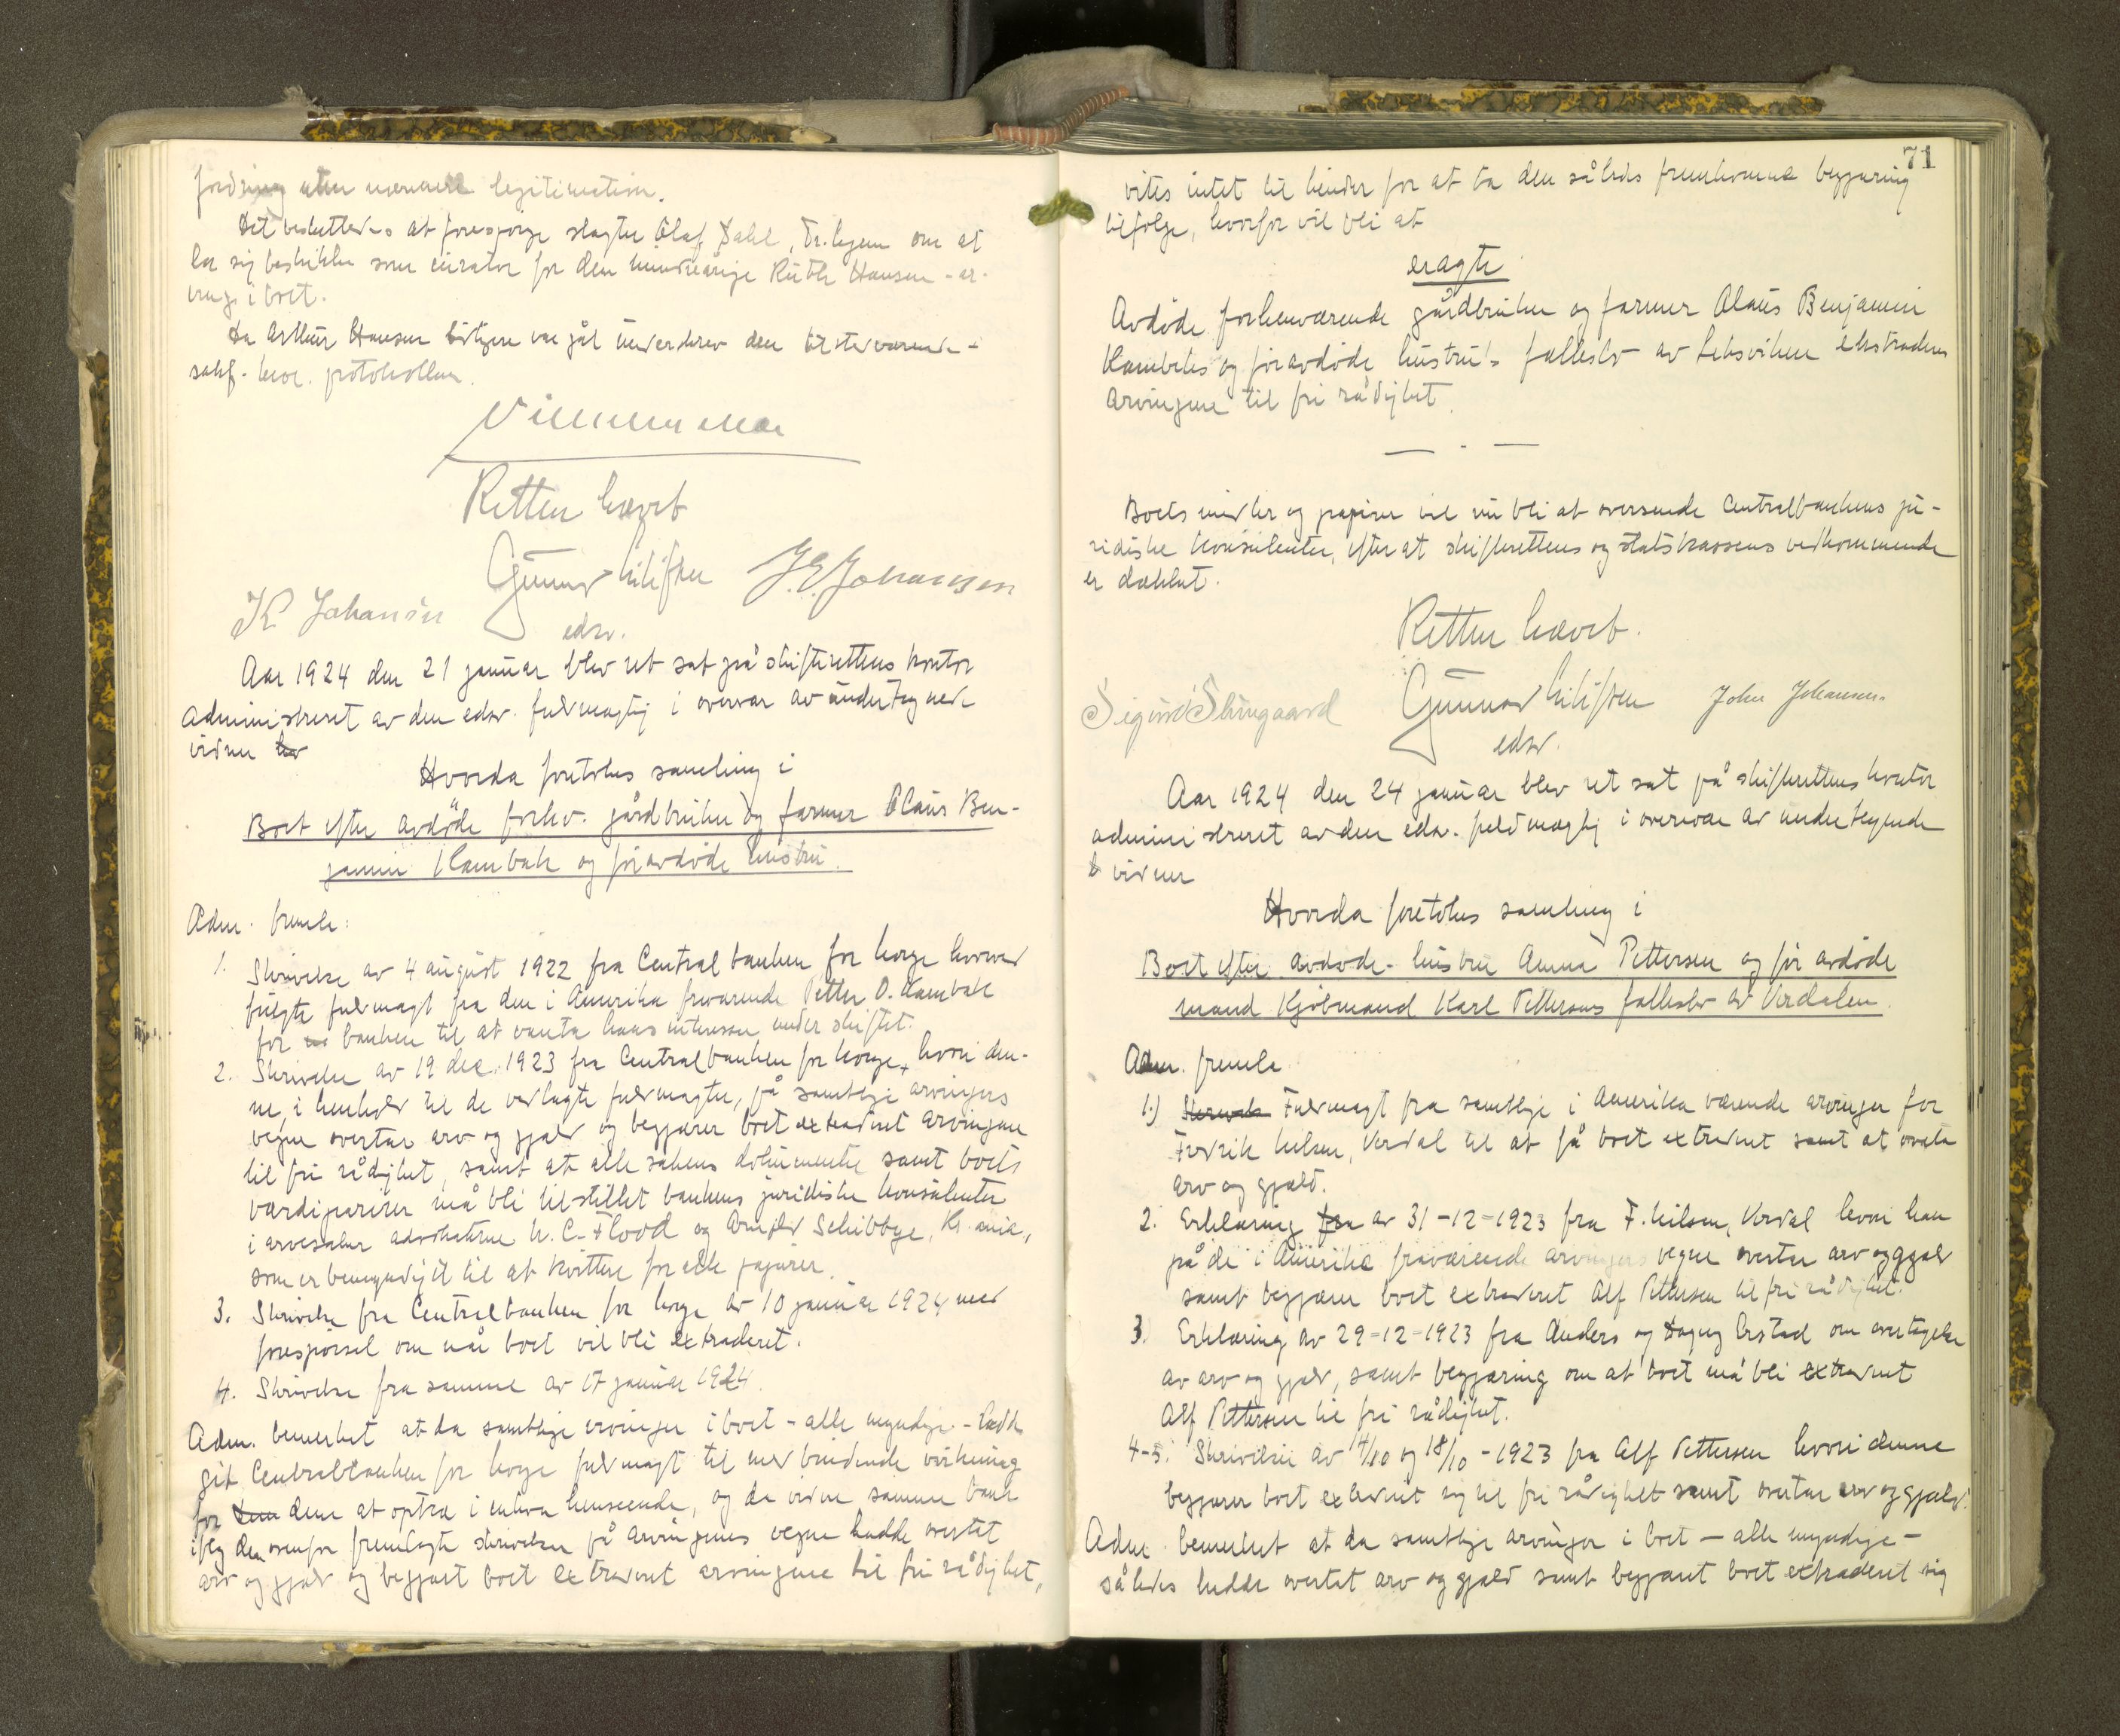 fordring uten nærmere legitimation.
Det besluttedes at forespørge slagter Olaf Dahl, Tr.hjem om at
la sig beskikke som curator for den mindreårige Ruth Hansen - ar-
ving i boet.
Da Arthur Hansen tidligere var gåt underskrev den tilstedeværende
sakf. hver. protokollen.
Retten hævet
Gunnar Nilssen J. E. Johansen
K Johansen
edsv.
Aar 1924 den 21 januar blev ret sat på skifterettens kontor
administreret av den edsv. fuldmægtig i overvær av undertegnede
vidner
Hvorda foretokes samling i
Boet efter avdøde forhv. gårdbruker og farmer Olaus Ben-
jamin Kambek og før avdøde hustru.
Adm. fremla:
1. Skrivelse av 4 august 1922 fra Centralbanken for Norge hvorved
fulgte fuldmagt fra den i Amerika fraværende Petter O. Kambek
for banken til at vareta hans interesser under skiftet.
2. Skrivelse av 19 dec. 1923 fra Centralbanken for Norge, hvori den-
ne, i henhold til de vedlagte fuldmagter, på samtlige arvingers
vegne overtar arv og gjæld og begjærer boet extraderet arvingene
til fri rådighet, samt at alle sakens dokumenter samt boets
værdipapirer må bli tilstillet bankens juridiske konsulenter
i arvesaker advokaterne N. C. Flood og Arnfeldt Schibbye, Kr.ania,
som er bemyndiget til at kvittere for alle papirer.
3. Skrivelse fra Centralbanken for Norge av 10 januar 1924 med
forespørsel om når boet vil bli extraderet.
4. Skrivelse fra samme av 17 januar 1924.
Adm. bemerket at da samtlige arvinger i boet - alle myndige - hadde
git Centralbanken for Norge fuldmagt til med bindende virkning
for dem at optræ i enhver henseende, og da videre samme bank
ifølg den ovenfor fremlagte skrivelse på arvingenes vegne hadde overtat
arv og gjæld og begjært boet extraderet arvingene til fri rådighet,
71
vites intet til hinder for at ta den således fremkomne begjæring
tilfølge, hvorfor vil bli at
eragte
Avdøde forhenværende gårdbruker og farmer Olaus Benjamin
Kambeks og føravdøde hustrus fællesbo av Leksviken ekstraderes
arvingene til fri rådighet.
Boets midler og papirer vil nu bli at oversende Centralbankens ju-
ridiske konsulenter, efter at skifterettens og statskassens vedkommende
er dækket.
Retten hævet.
Sigurd Skrugaard Gunnar Nilssen John Johansen.
edsv.
Aar 1924 den 24 januar blev ret sat på skifterettens kontor
administreret av den edsv. fuldmægtig i overvær av undertegnede
vidner
Hvorda foretokes samling i
Boet efter avdøde hustru Anna Pettersen og før avdøde
mand kjøbmand Karl Pettersens fællesbo av Verdalen.
Adm. fremla
1.) Fuldmagt fra samtlige i Amerika værende arvinger for
Fredrik Nilsen, Verdal til at få boet extraderet samt at overta
arv og gjæld.
2. Erklæring av 31-12-1923 fra F. Nilsen, Verdal hvori han
på de i Amerika fraværende arvingers vegne overtar arv og gjæld
samt begjærer boet extraderet Alf Pettersen til fri rådighet.
3. Erklæring av 29-12-1923 fra Anders og Dagny Ørstad om overtagelse
av arv og gjæld, samt begjæring om at boet må bli extraderet
Alf Pettersen til fri rådighet.
4-5. Skrivelser av 4/10 og 18/10 - 1923 fra Alf Pettersen hvori denne
begjærer boet extraderet sig til fri rådighet samt overtar arv og gjæld.
Adm. bemerket at da samtlige arvinger i boet - alle myndige -
således hadde overtat arv og gjæld samt begjært boet extraderet sig